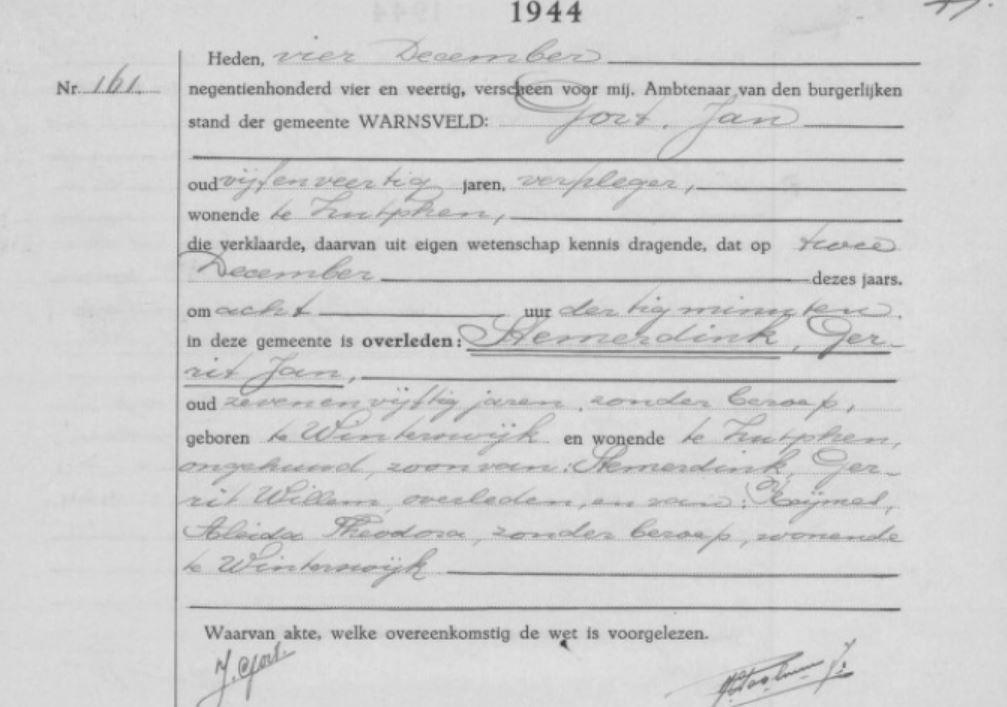 1944
Heden, vier December
Nr. 161. negentienhonderd vier en veertig, verscheen voor mij. Ambtenaar van den burgerlijken
stand der gemeente WARNSVELD: Gort, Jan
oud vijfenveertig jaren, verpleger,
wonende te Zutphen,
die verklaarde, daarvan uit eigen wetenschap kennis dragende, dat op twee
December dezes jaars.
om acht uur dertig minuten,
in deze gemeente is overleden: Stemerdink, Ger-
rit Jan,
oud zevenenvijftig jaren, zonder beroep,
geboren te Winterswijk en wonende te Zutphen,
ongehuwd, zoon van: Stemerdink, Ger-
rit Willem, overleden, en van: Reijmes,
Aleida Theodora, zonder beroep, wonende
te Winterswijk
Waarvan akte, welke overeenkomstig de wet is voorgelezen.
J. Gort.